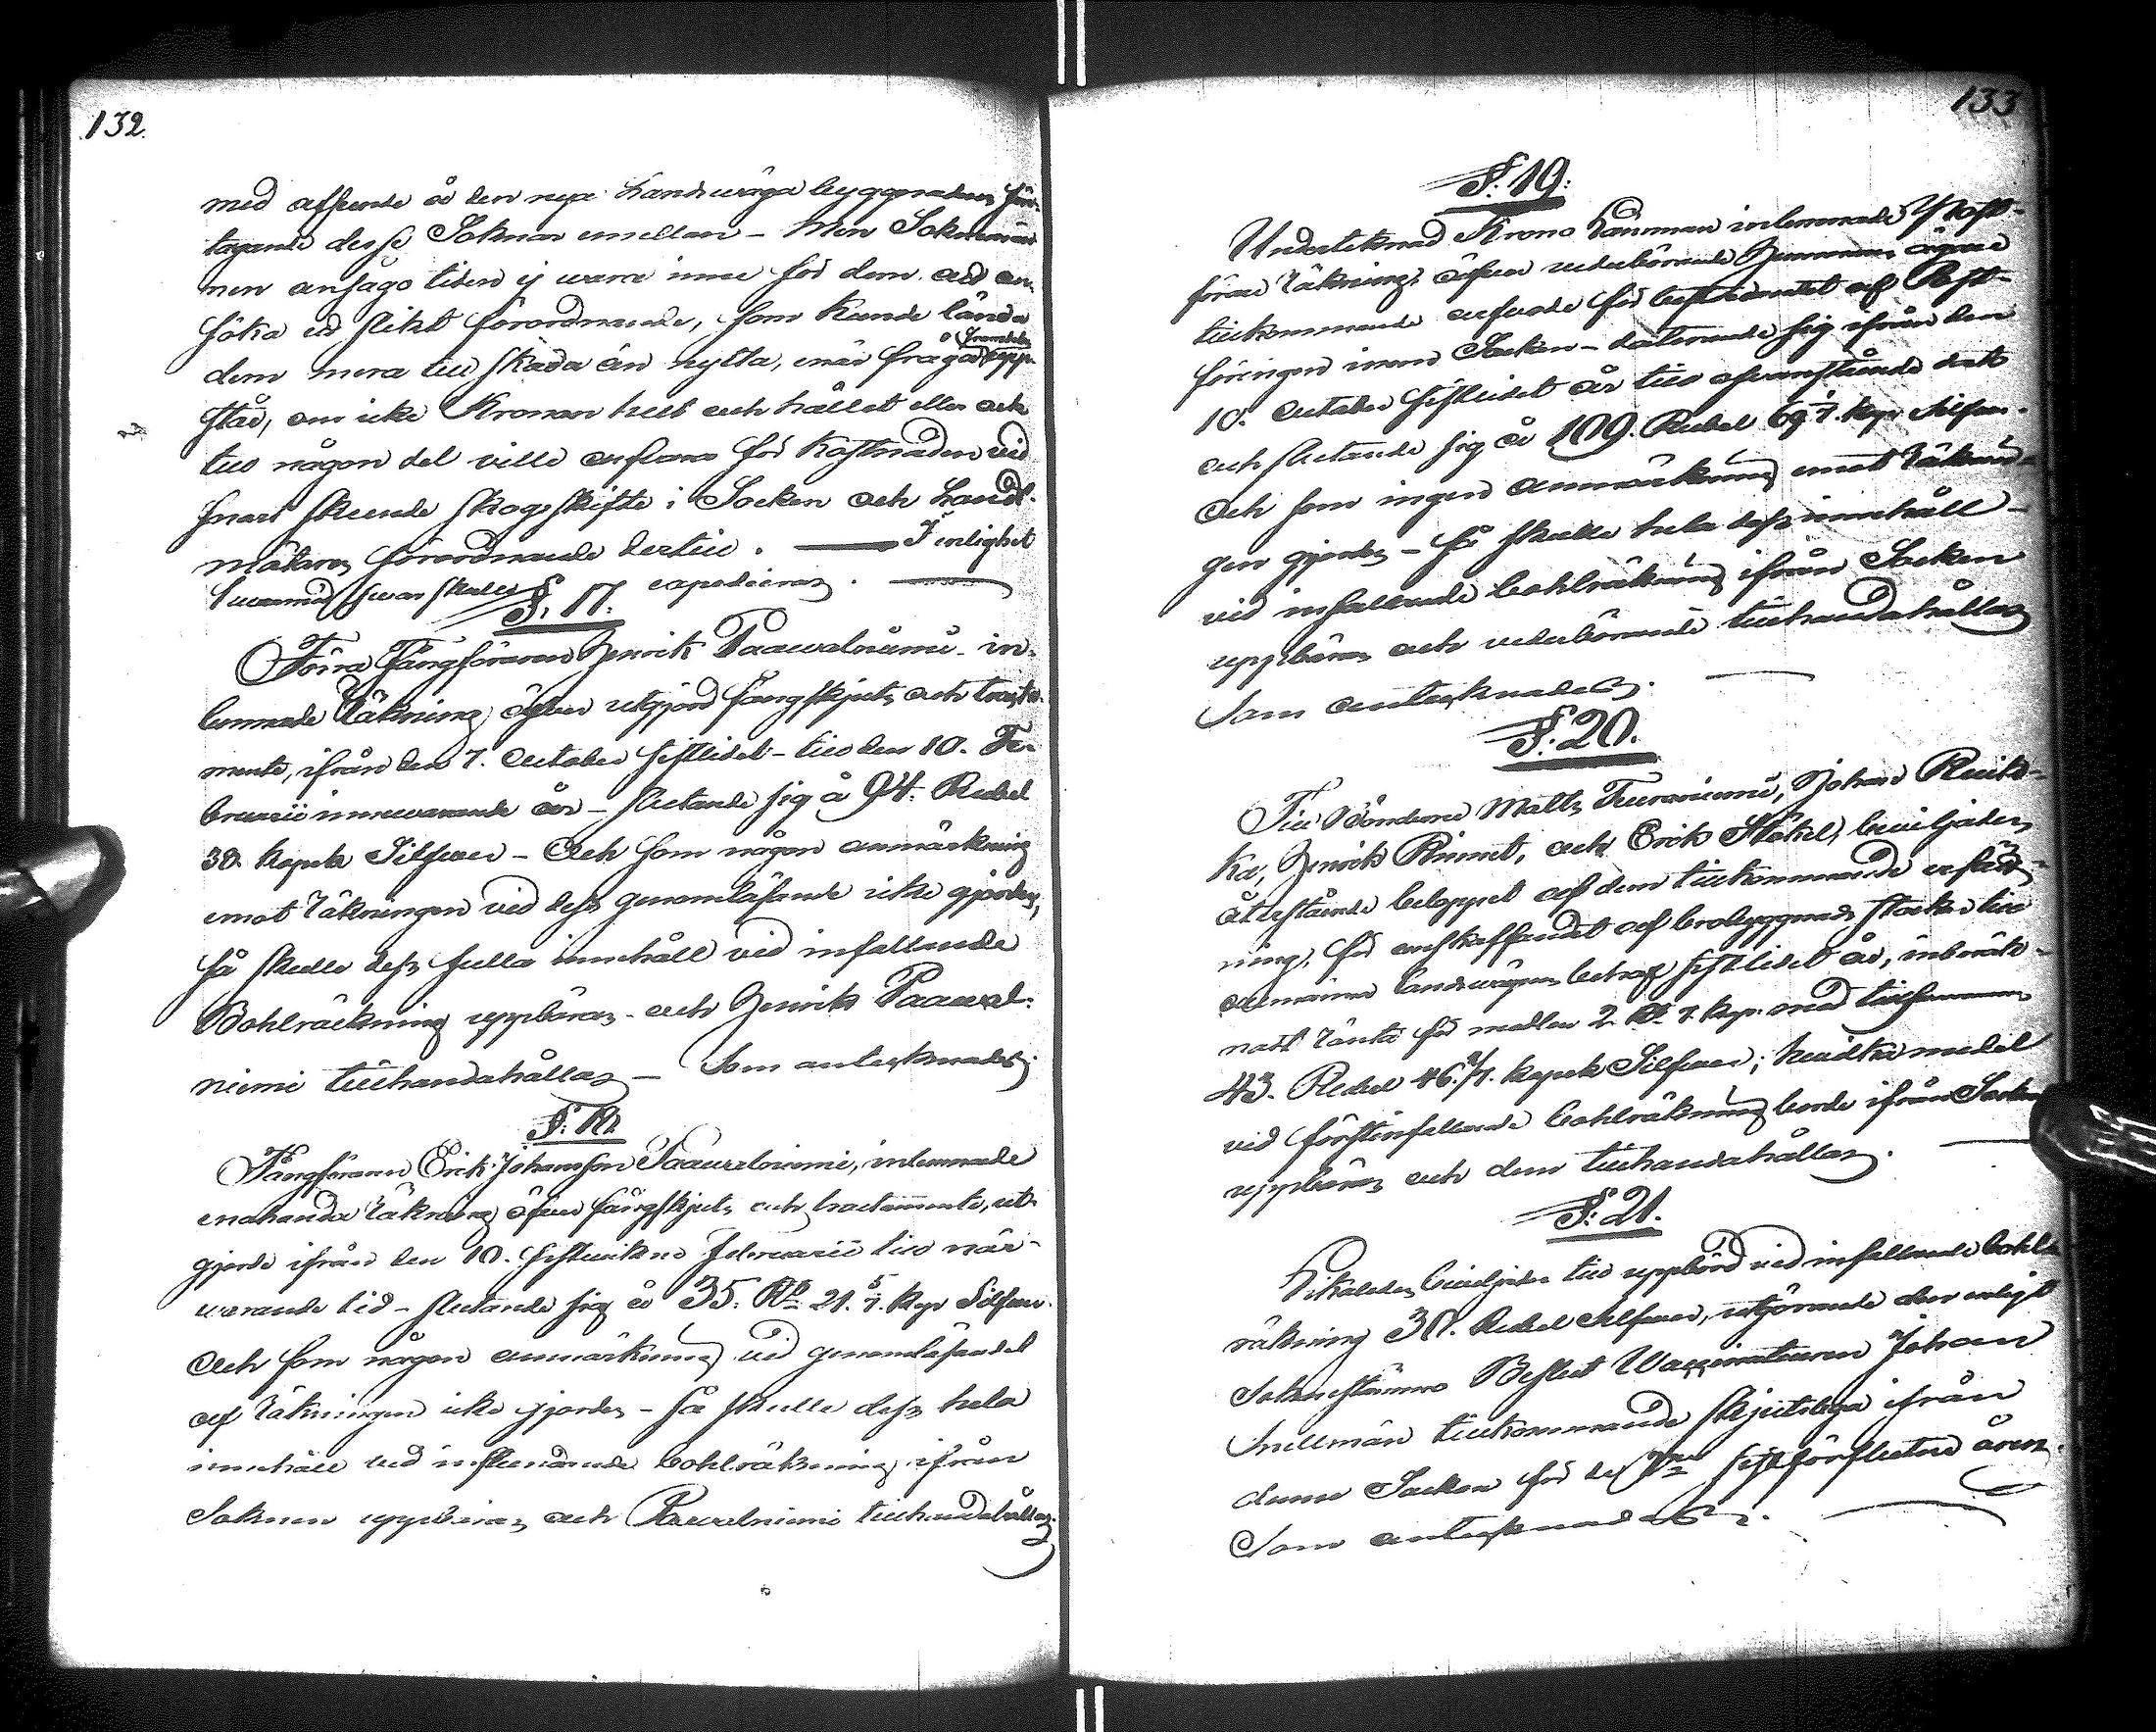 132.
med afseende å den nya Landswäga byggnadens före-
tagande desse Soknar emellan – Men Soknemän-
nen ansågo tiden ej wara inne för dem att an-
söka ett slikt förordnande, som kunde lända
dem mera till skada än nytta, enär frågan framdeles upp-
står, om icke Kronan helt och hållet eller ock
till någon del ville ansvara för kostnaden vid
snart skeende skogsskifte i Socken och Landt-
mätares förordnande dertill. — I enlighet
hvarmed svar skulle expedieras. —
§. 17.
Förra Fångföraren Henrik Paawalniemi in-
lemnade Räkning öfver utgjord fångskjuts och tracta-
mente, ifrån den 7. October sistlidet – till den 10. Fe-
bruarii innewarande år – slutande sig å 94. Rubel
38. kopek Silfver – Och som någon anmärkning
emot räkningen vid dess genomläsande icke gjordes,
så skulle dess fulla innehåll vid infallande
Bohlräckning uppbäras och Henrik Paawal-
niemi tillhandahållas – Som antecknades.
§. 18.
Fångföraren Erik Johansson Paawalniemi, inlemnade
enahanda räkning öfver fångskjuts och tractamente, ut-
gjorde ifrån den 10. sistwikne Februarii till när-
warande tid – slutande sig å 35. Rb 21. 5/7. kop Silfver.
Och som någon anmärkning vid genomläsandet
af räkningen icke gjordes – så skulle dess hela
innehåll vid instundande bohlräkning ifrån
Soknen uppbäras och Paawalniemi tillhandahållas.
133
§. 19.
Undertecknad Krono Länsman inlemnade Post-
förare räkning, öfver vederbörande Hemmans ägare
tillkommande arfvode för bestridandet af Post-
föringen inom Socken – daterande sig ifrån den
10. October sistlidet år till ofvanstående dato
och slutande sig å 109. Rubel 69. 1/7. kop Silfver.
Och som ingen anmärkning emot räknin-
gen gjordes – så skulle hela dess innehåll
vid infallande bohlräkning ifrån Socken
uppbäras och vederbörande tillhandahållas
Som antecknades. —
§. 20.
Till Bönderne Matts Tuuraniemi, Johan Ruik-
ka, Henrik Rimut, och Erik Stöckel, beviljades
återstående beloppet af dem tillkommande ersätt-
ning, för anskaffandet af brobyggnads stockar till
allmänna landsvägens behof sistlidet år, inberäk-
nadt ränta för medlen 2. Rb. 7. kop. med tillsammans
43. Rubel 46. 2/7. kopek Silfver; hwilka medel
vid förstinfallande bohlräkning borde ifrån Socken
uppbäras och dem tillhandahållas. —
§. 21.
Likaledes beviljades till uppbörd vid infallande bohl-
räkning 30. Rubel Silfver, utgörande den enligt
Soknestämmo Beslut Vaccinateuren Johan
Snellman tillkommande skjutslega ifrån
denne Socken för de sistförflutne åren.
Som antecknades. —